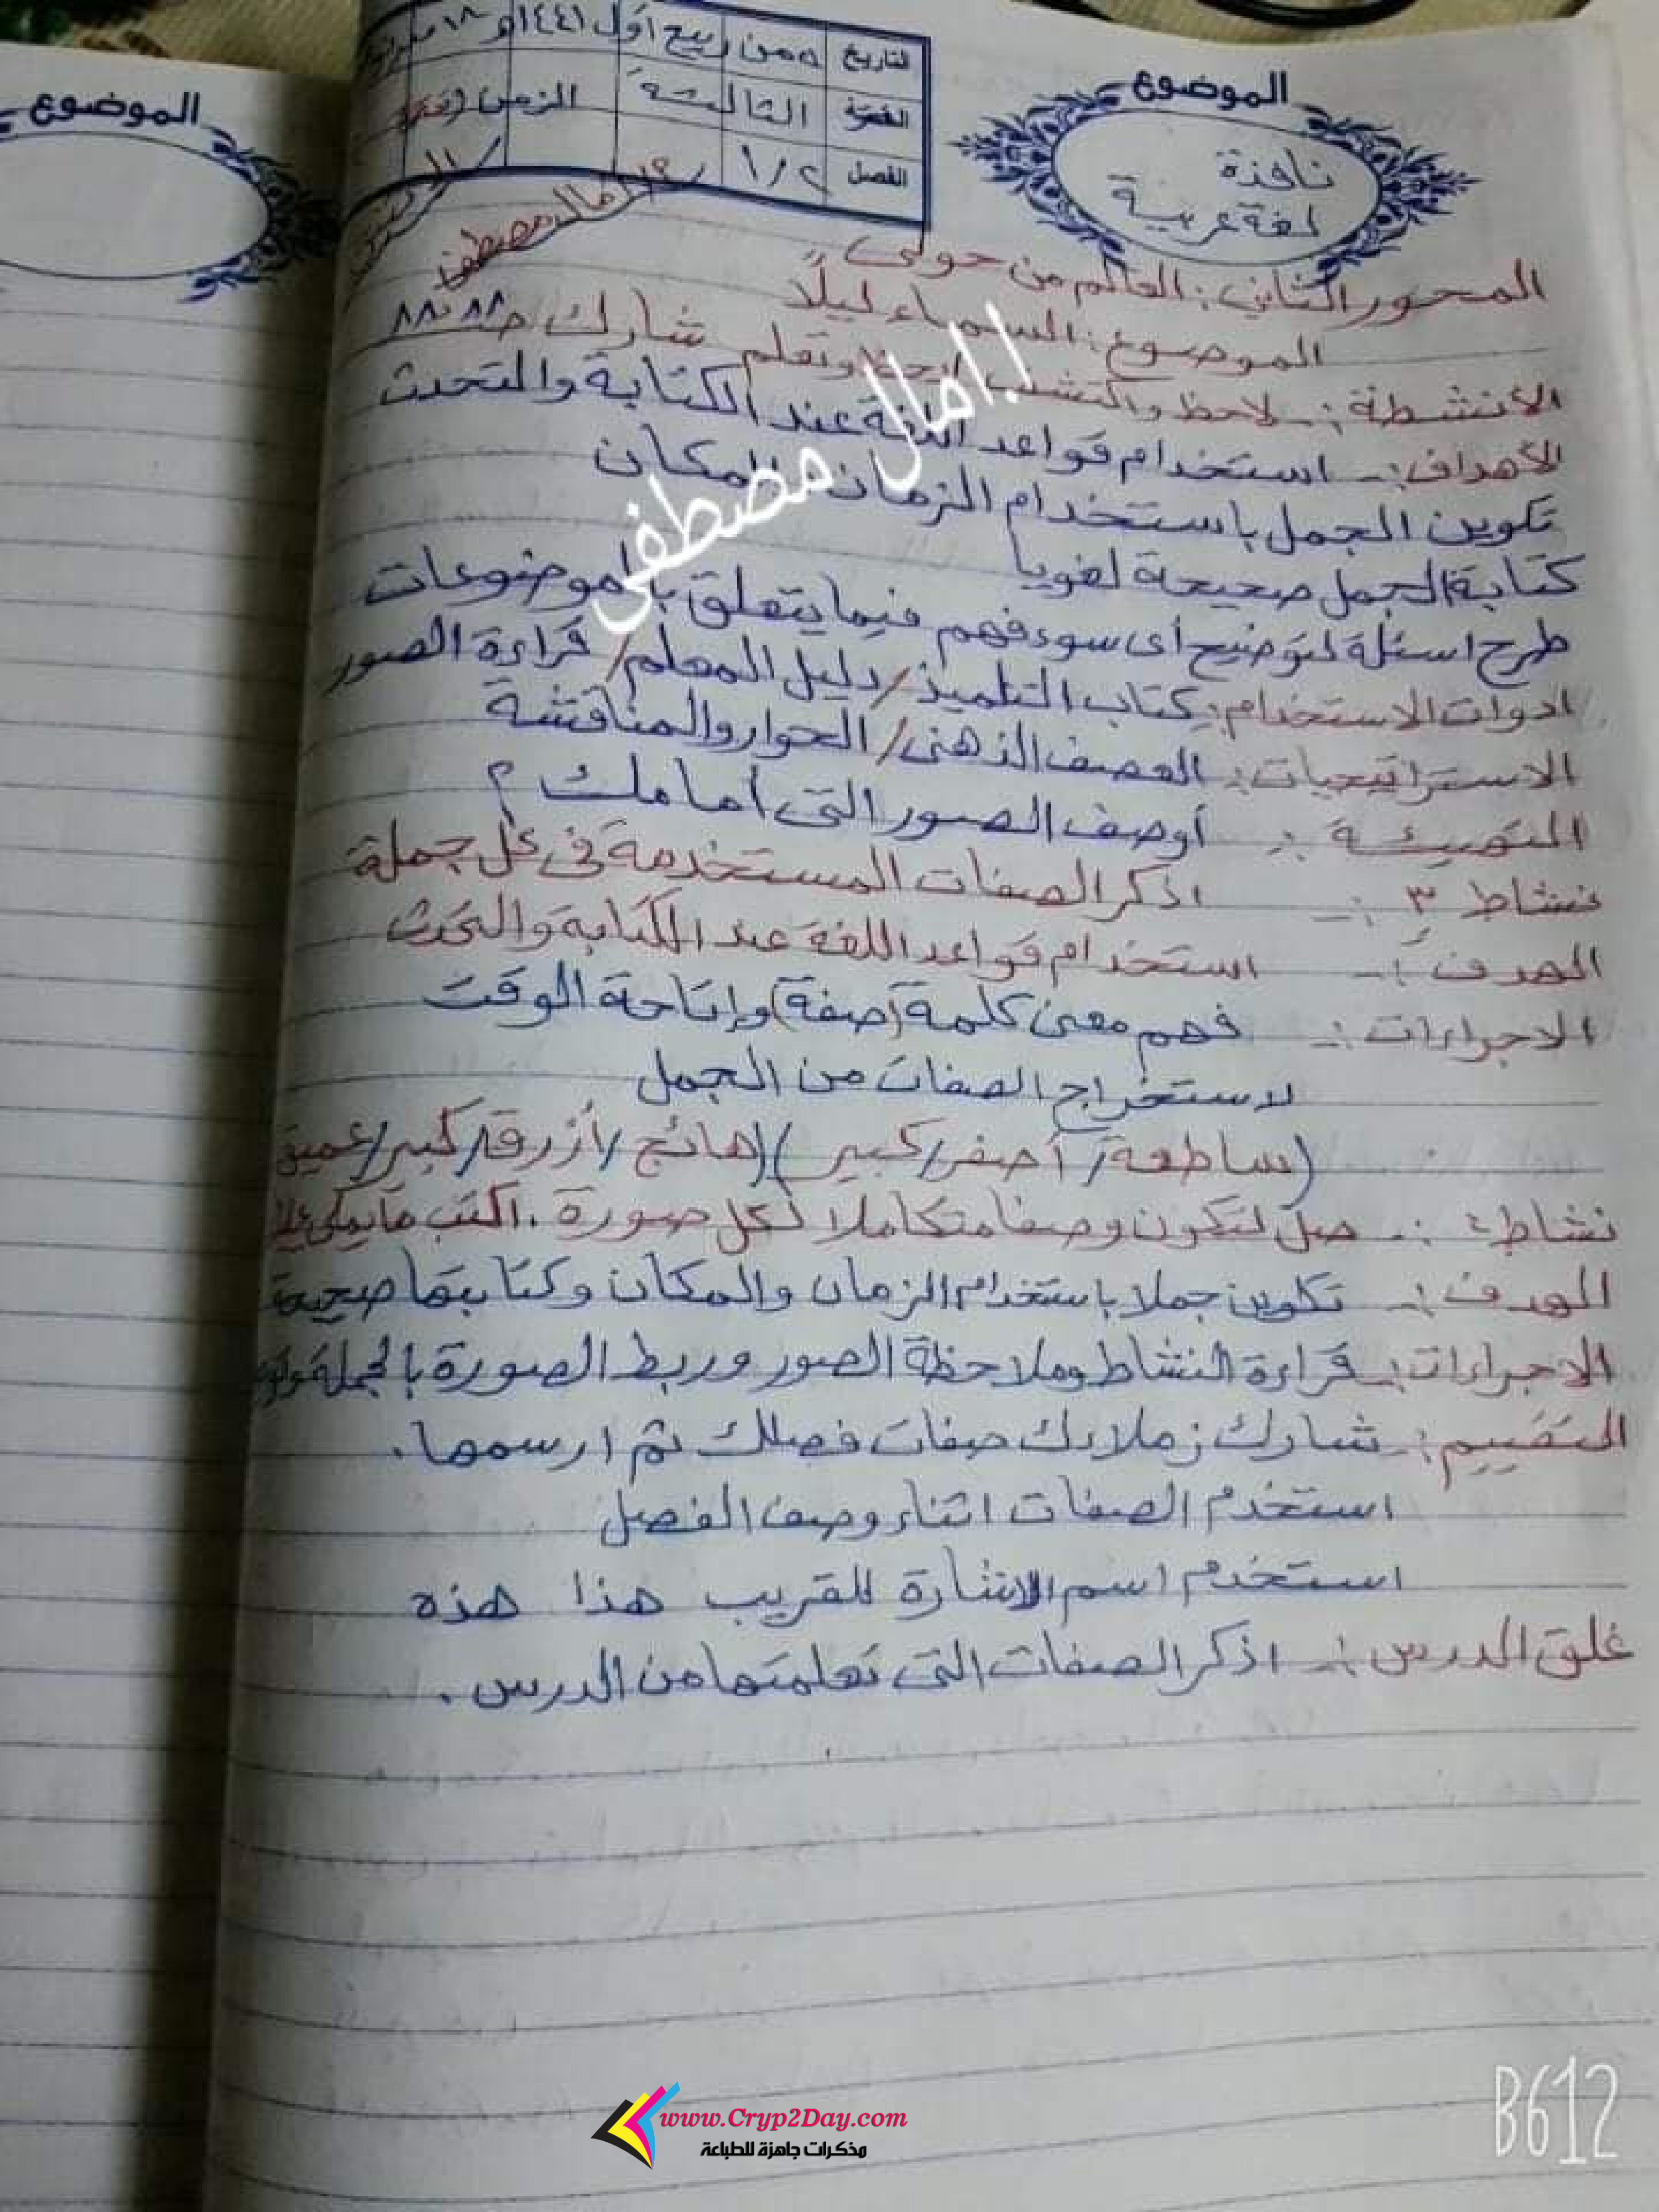 الموضوع
الموضوع
نافذة
لغة عربية
التاريخ من ربيع أول ١٤٤١
الفترة الثالثة الزمن
الفصل ١/٢
أ/ امال مصطفى
المحور الثاني: العالم من حولى
الموضوع: السماء ليلًا
الأنشطة:- لاحظ واكتشف وتعلم شارك
الأهداف:- استخدام قواعد اللغة عند الكتابة والتحدث
تكوين الجمل باستخدام الزمان والمكان
كتابة الجمل صحيحة لغويا
طرح اسئلة لتوضيح أى سوء فهم فيما يتعلق بالموضوعات
ادوات الاستخدام: كتاب التلميذ/ دليل المعلم/ قراءة الصور
الاستراتيجيات: العصف الذهنى/ الحوار والمناقشة
التهيئة :- أوصف الصور التى أمامك ؟
نشاط ٣ :- اذكر الصفات المستخدمة فى كل جملة
الهدف :- استخدام قواعد اللغة عند الكتابة والتحدث
الاجراءات :- فهم معنى كلمة (صفة) وإتاحة الوقت
لاستخراج الصفات من الجمل
(ساطعة/ أصفر/ كبير )(هائج /أزرق/ كبير/ عميق
نشاط ٤ :- صل لتكون وصفا متكاملا لكل صورة . اكتب ما يملى عليك
الهدف :- تكوين جملا باستخدام الزمان والمكان وكتابتها صحيحة
الاجراءات :- قراءة النشاط وملاحظة الصور وربط الصورة بالجملة
التقييم :- شارك زملاءك صفات فصلك ثم ارسمها .
استخدم الصفات اثناء وصف الفصل
استخدم اسم الاشارة للقريب هذا هذه
غلق الدرس :- اذكر الصفات التى تعلمتها من الدرس .
امال مصطفى
www.Cryp2Day.com
مذكرات جاهزة للطباعة
B612